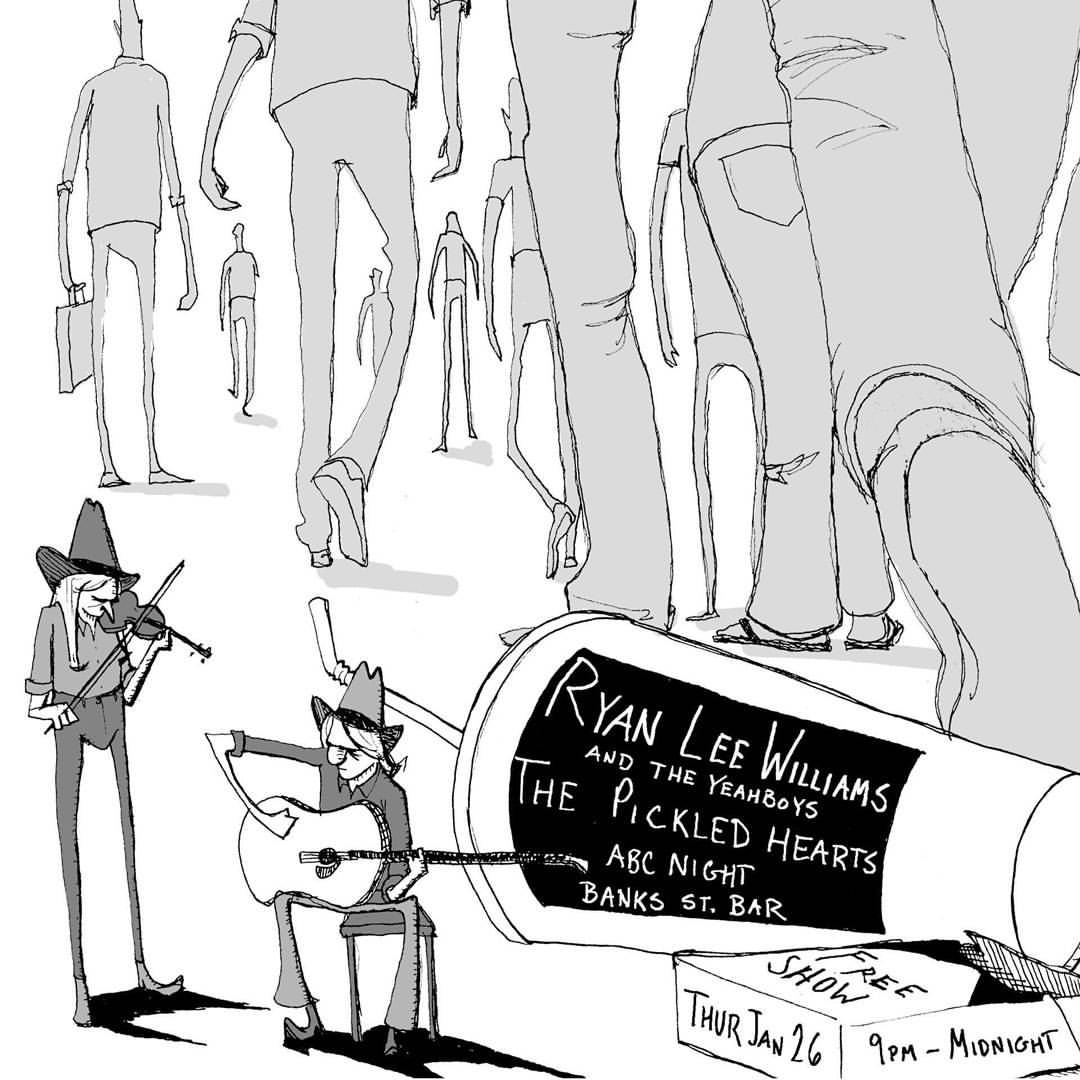 RYAN LEE WILLIAMS
AND THE YEAHBOYS
THE PICKLED HEARTS
ABC NIGHT
BANKS ST. BAR
FREE
SHOW
THUR JAN 26
9PM - MIDNIGHT